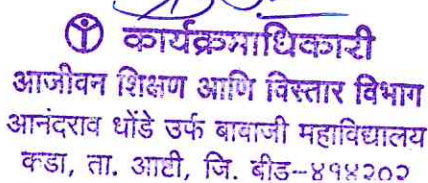 कार्यक्रमाधिकारी
आजीवन शिक्षण आणि विस्तार विभाग
आनंदराव धोंडे उर्फ बाबाजी महाविद्यालय
कडा, ता. आष्टी, जि. बीड-४१४२०२